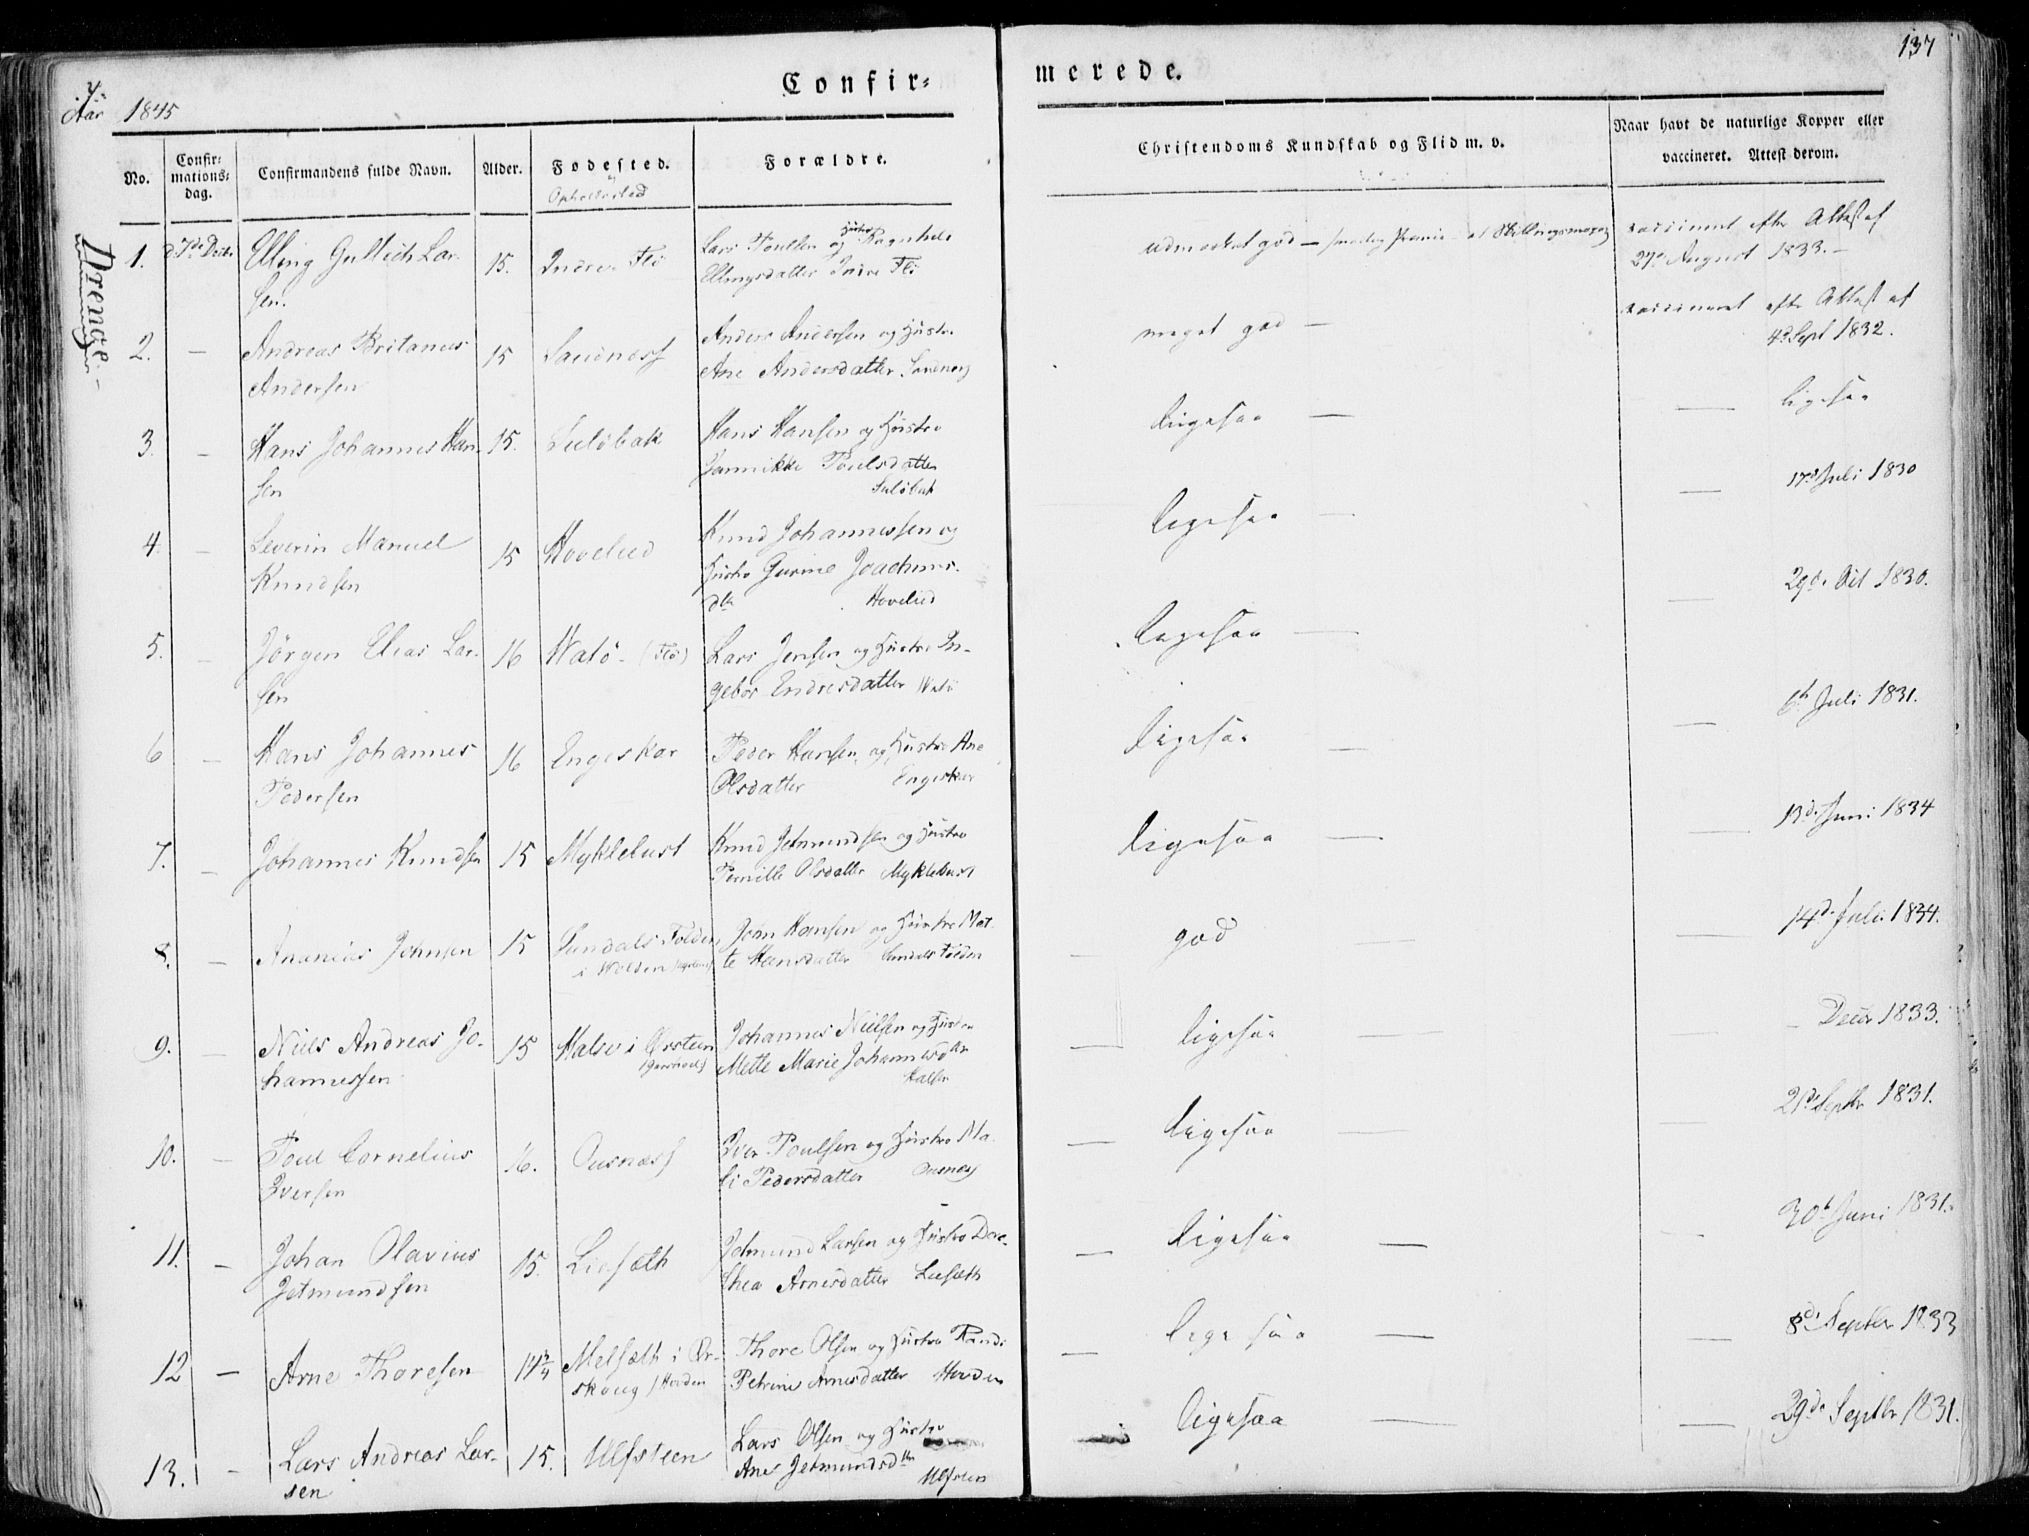 Confir=
merede.
137
Aar 1845
No.
Confir=
mations=
dag.
Confirmandens fulde Navn.
Alder.
Fødested.
Opholdssted
Forældre.
Christendoms Kundskab og Flid m. v.
Naar havt de naturlige Kopper eller
vaccineret. Attest derom.
Drenge
1.
Elling Gullich Lar-
sen.
15.
Indre Flö
Lars Poulsen og Hustro Ragnhild
Ellingsdatter Indre Flö
udmærket god —
vaccineret efter Attest af
27de August 1833. —
2. —
Andreas Britanus
Andersen
15
Sandness
Anders Andersen og Hustro
Ane Andersdatter Sandnes
meget god —
vaccineret efter Attest af
4d Sept 1832.
3. —
Hans Johannes Han-
sen
15.
Sulöbak
Hans Hansen og Hustro
Jannikke Poulsdatter
Sulöbak
ligesaa —
— ligesaa
4. —
Severin Manuel
Knudsen
15
Hovelied
Knud Johannessen og
Hustro Gurine Joachims-
dtr Hovelied
ligesaa —
— 17d Juli 1830
5. —
Jörgen Elias Lar-
sen
16
Watö - (Flö)
Lars Jensen og Hustro In-
gebor Endresdatter Watö
ligesaa —
— 29de Oct 1830.
6 —
Hans Johannes
Pedersen
16
Engeskar
Peder Hansen og Hustro Ane
Olsdatter Engeskar
ligesaa —
— 6t Juli 1831.
7. —
Johannes Knudsen
15
Myklebust
Knud Jetmundsen og Hustro
Pernille Olsdatter Myklebust
ligesaa —
— 13de Juni 1834
8. —
Ananias Johnsen
15
Sundals Folden
i Wolden
John Hansen og Hustro Mat-
te Hansdatter Sundals Folden
— god —
— 14d Juli 1834.
9. —
Niels Andreas Jo-
hannessen
15
Halse i Örsteen
Johannes Nielsen og Hustro
Mette Marie Johannesdtr
Halsen
— ligesaa —
— Decbr 1833.
10. —
Poul Cornelius
Iversen
16.
Ousness
Iver Poulsen og Hustro Ma-
li Pedersdatter Ousness
— ligesaa —
— 21de Septbr 1831.
11. —
Johan Olavius
Jetmundsen
15.
Liesæth
Jetmund Larsen og Hustro Doro-
thea Arnesdatter Liesæth
— ligesaa —
— 30t Juni 1831.
12 —
Arne Thoresen
14 3/4
Melsæth i Ör-
skoug / Horden
Thore Olsen og Hustro Randi
Petrine Arnesdatter Horden
— ligesaa —
— 8de Septbr 1833
13. —
Lars Andreas Lar-
sen
15.
Ulfsteen
Lars Olsen og Hustro
Ane Jetmundsdtr
Ulfsten
ligesaa —
— 29de Septbr 1831.